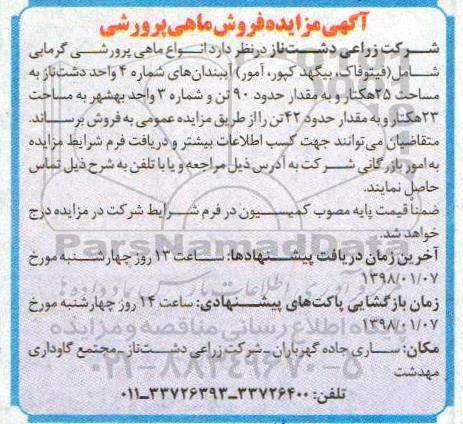 آگهی مزایده فروش ماهی پرورشی
شرکت زراعی دشت‌ناز در نظر دارد انواع ماهی پرورشی گرمابی
شامل (فیتوفاگ، بیگهد کپور، آمور) آببندان‌های شماره ۴ واحد دشت‌ناز به
مساحت ۲۵هکتار و به مقدار حدود ۹۰ تن و شماره ۳ واحد بهشهر به مساحت
۲۳هکتار و به مقدار حدود ۴۲تن را از طریق مزایده عمومی به فروش برساند.
متقاضیان می‌توانند جهت کسب اطلاعات بیشتر و دریافت فرم شرایط مزایده
به امور بازرگانی شرکت به آدرس ذیل مراجعه و یا با تلفن به شرح ذیل تماس
حاصل نمایند.
ضمناً قیمت پایه مصوب کمیسیون در فرم شرایط شرکت در مزایده درج
خواهد شد.
آخرین زمان دریافت پیشنهادها: ساعت ۱۳ روز چهارشنبه مورخ
۱۳۹۸/۰۱/۰۷
زمان بازگشایی پاکت‌های پیشنهادی: ساعت ۱۴ روز چهارشنبه مورخ
۱۳۹۸/۰۱/۰۷
مکان: ساری جاده گهرباران ـ شرکت زراعی دشت‌ناز ـ مجتمع گاوداری
مهدشت
تلفن: ۳۳۷۲۶۴۰۰ـ۳۳۷۲۶۳۹۳ـ۰۱۱
ParsNamadData
پایگاه اطلاع رسانی مناقصه و مزایده
۰۲۱-۸۸۳۴۹۶۷۰-۵